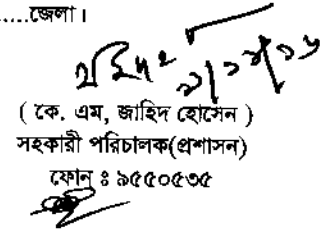 .....জেলা।
( কে. এম, জাহিদ হোসেন )
সহকারী পরিচালক(প্রশাসন)
ফোন ঃ ৯৫৫০৫৩৫